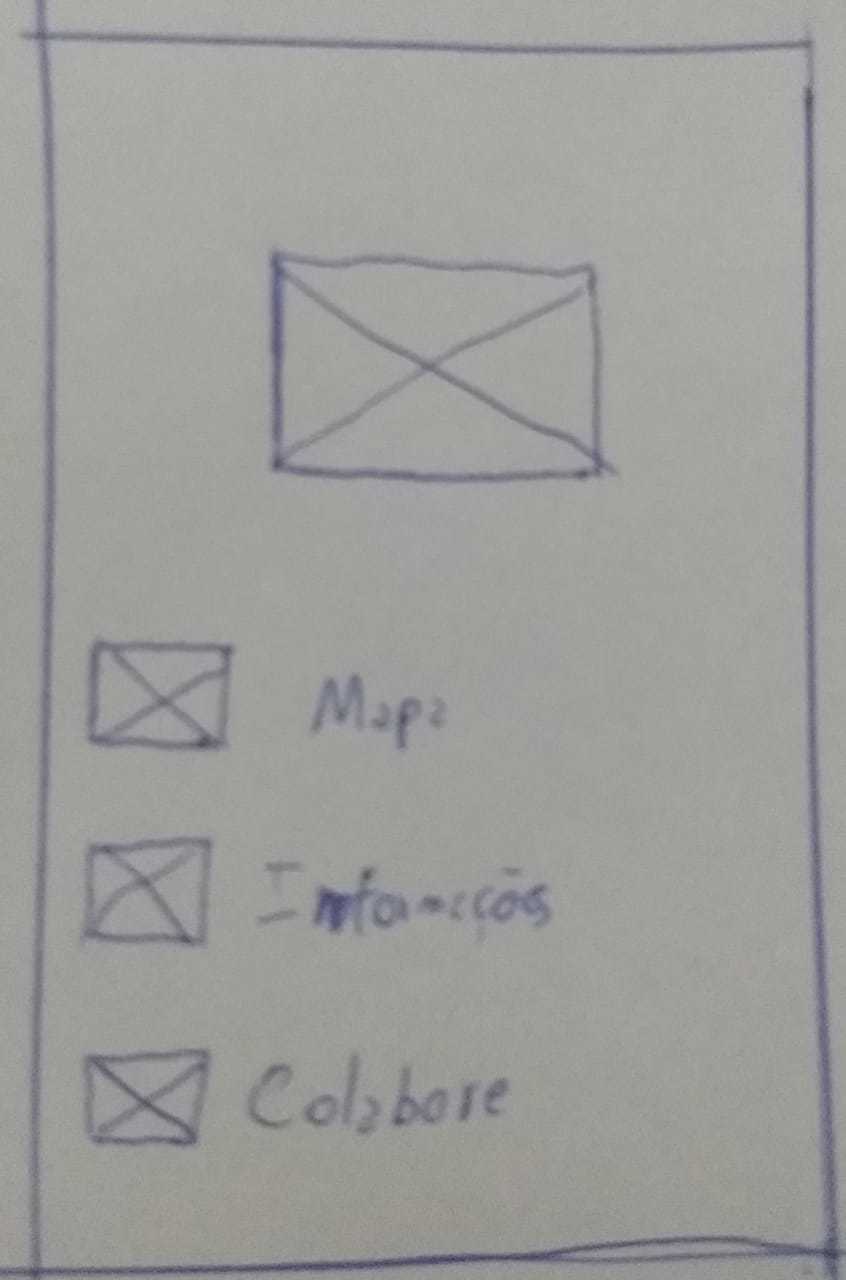 Mapa
Informações
Colabore